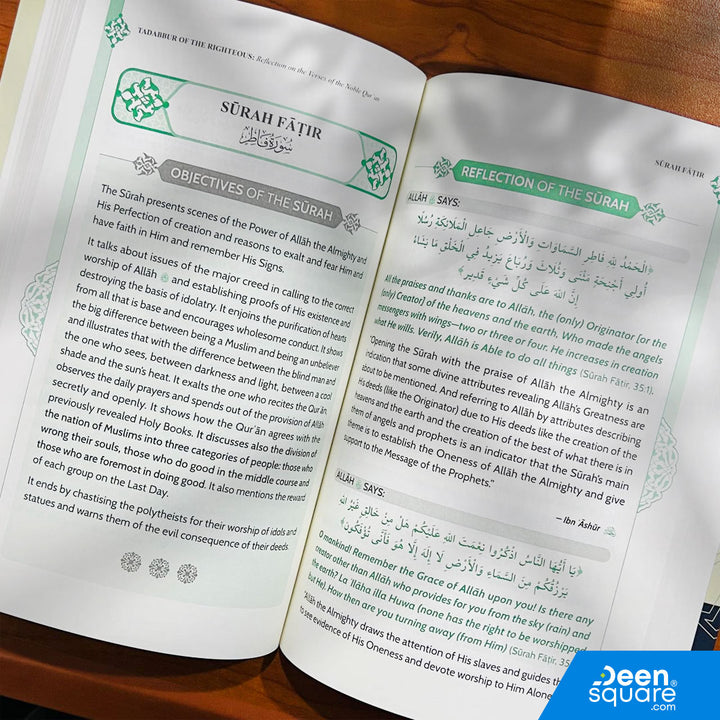 TADABBUR OF THE RIGHTEOUS: Reflection on the Verses of the Noble Qur'an
SŪRAH FĀṬIR
سُورَةُ فَاطِرٍ
OBJECTIVES OF THE SŪRAH
The Sūrah presents scenes of the Power of Allāh the Almighty and
His Perfection of creation and reasons to exalt and fear Him and
have faith in Him and remember His Signs.
It talks about issues of the major creed in calling to the correct
worship of Allāh ﷻ and establishing proofs of His existence and
destroying the basis of idolatry. It enjoins the purification of hearts
from all that is base and encourages wholesome conduct. It shows
the big difference between being a Muslim and being an unbeliever
and illustrates that with the difference between the blind man and
the one who sees, between darkness and light, between a cool
shade and the sun's heat. It exalts the one who recites the Qur'ān,
observes the daily prayers and spends out of the provision of Allāh
secretly and openly. It shows how the Qur'ān agrees with the
previously revealed Holy Books. It discusses also the division of
the nation of Muslims into three categories of people: those who
wrong their souls, those who do good in the middle course and
those who are foremost in doing good. It also mentions the reward
of each group on the Last Day.
It ends by chastising the polytheists for their worship of idols and
statues and warns them of the evil consequence of their deeds.
SŪRAH FĀṬIR
REFLECTION OF THE SŪRAH
ALLĀH ﷻ SAYS:
﴿الْحَمْدُ لِلَّهِ فَاطِرِ السَّمَاوَاتِ وَالْأَرْضِ جَاعِلِ الْمَلَائِكَةِ رُسُلًا
أُولِي أَجْنِحَةٍ مَثْنَى وَثُلَاثَ وَرُبَاعَ يَزِيدُ فِي الْخَلْقِ مَا يَشَاءُ
إِنَّ اللَّهَ عَلَى كُلِّ شَيْءٍ قَدِيرٌ﴾
All the praises and thanks are to Allāh, the (only) Originator [or the
(only) Creator] of the heavens and the earth, Who made the angels
messengers with wings—two or three or four. He increases in creation
what He wills. Verily, Allāh is Able to do all things (Sūrah Fāṭir, 35:1).
"Opening the Sūrah with the praise of Allāh the Almighty is an
indication that some divine attributes revealing Allāh's Greatness are
about to be mentioned. And referring to Allāh by attributes describing
His deeds (like the Originator) due to His deeds like the creation of the
heavens and the earth and the creation of the best of what there is in
them of angels and prophets is an indicator that the Sūrah's main
theme is to establish the Oneness of Allāh the Almighty and give
support to the Message of the Prophets."
— Ibn 'Āshūr
ALLĀH ﷻ SAYS:
﴿يَا أَيُّهَا النَّاسُ اذْكُرُوا نِعْمَتَ اللَّهِ عَلَيْكُمْ هَلْ مِنْ خَالِقٍ غَيْرُ اللَّهِ
يَرْزُقُكُمْ مِنَ السَّمَاءِ وَالْأَرْضِ لَا إِلَهَ إِلَّا هُوَ فَأَنَّى تُؤْفَكُونَ﴾
O mankind! Remember the Grace of Allāh upon you! Is there any
creator other than Allāh who provides for you from the sky (rain) and
the earth? La 'Ilāha illa Huwa (none has the right to be worshipped
but He). How then are you turning away (from Him) (Sūrah Fāṭir, 35
"Allāh the Almighty draws the attention of His slaves and guides th
to see evidence of His Oneness and devote worship to Him Alone
Deen
square
.com